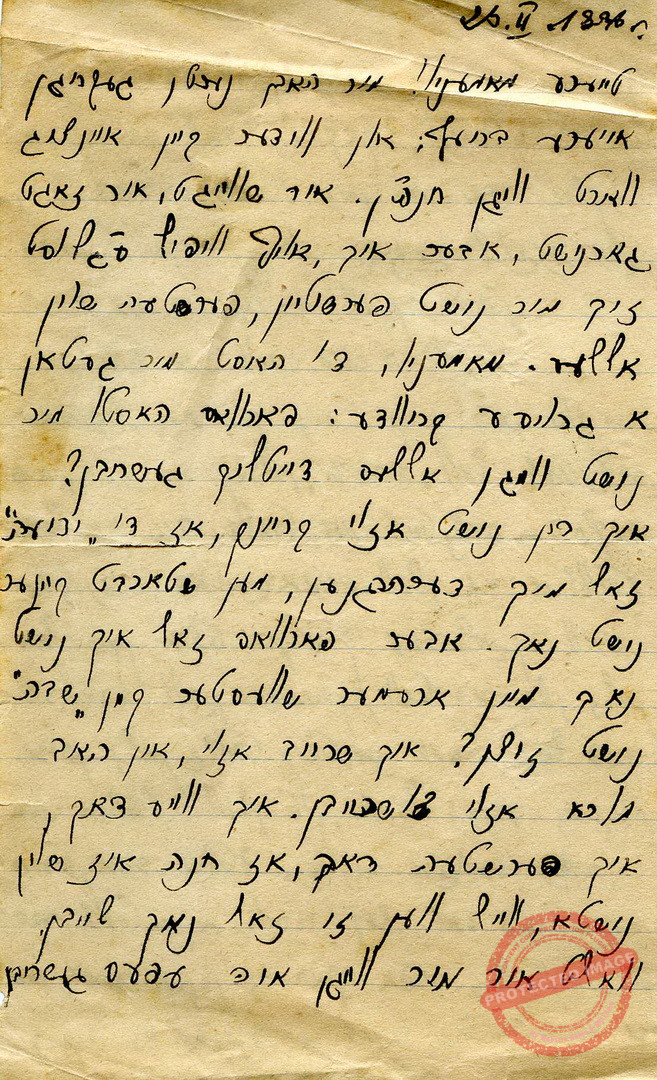 25.II 1936 г.
טייערע מאמעניו! מיר האבן נעכטן געקריגן
אייערע בריוו; און ווידער קיין איינציג
ווארט וועגן חנה'ן. איר שווייגט, איר זאגט
גארנישט, אבער איך, אויף וויפיל ס'גלוסט
זיך מיר נישט פערשטיין, פערשטעה שוין
אללעס. מאמעניו, דו האסט מיר געטאן
א גרויסע קריוודע: פארוואס האסטו מיר
נישט אללעס דייטליך געשריבן?
איך בין נישט אזוי קריינק, אז די „ידיעה"
זאל מיך דערהרגענען, מען שטארבט קיינער
נישט נאך. אבער פארוואס זאל איך נישט
נאך מיין ארעמער שוועסטער קיין „שבעה"
נישט זיצן? איך שרייב אזוי, און האב
מורא אזוי צו שרייבן. איך ווייס דאך,
איך פערשטעה דאך, אז חנה איז שוין
נישטא, ווייל ווען זי זאל נאך לייבן,
וואלט איר מיר וועגן איר עפעס געשריבן
PROTECTED IMAGE